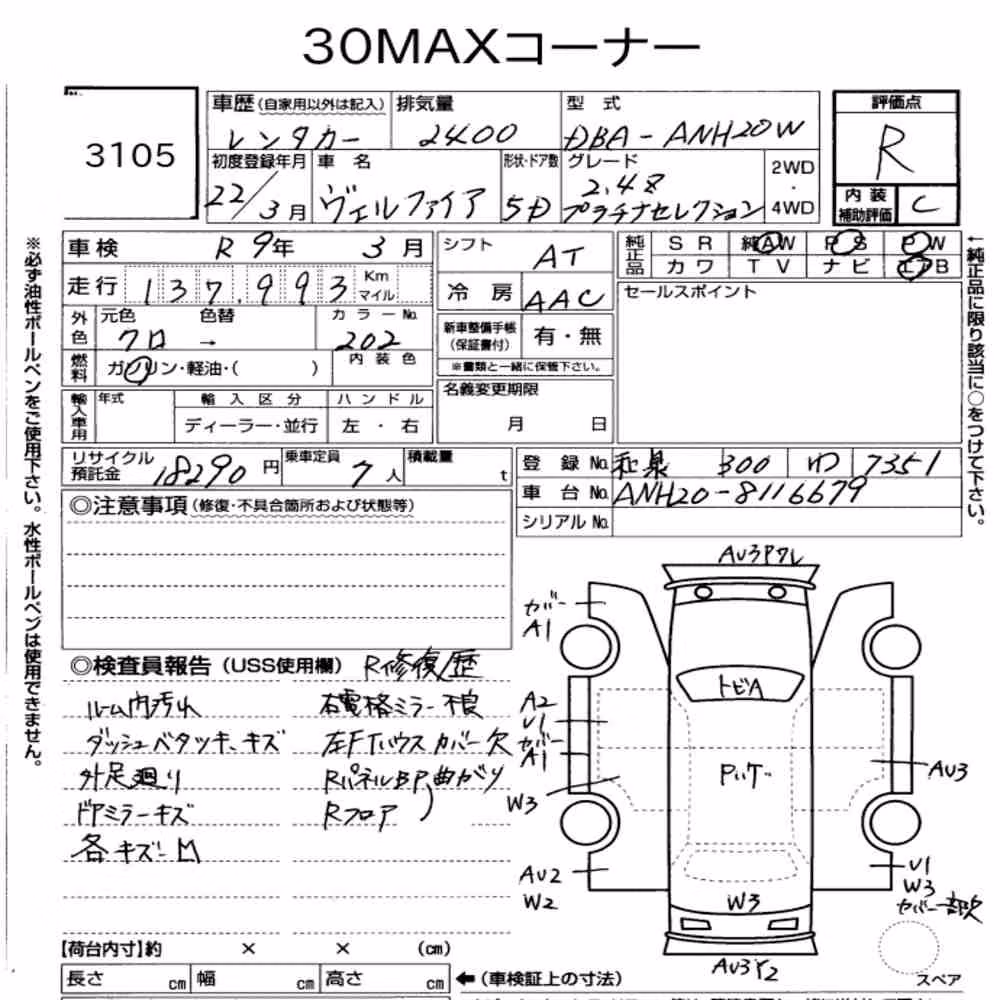 30MAXコーナー
3105
車歴(自家用以外は記入) 排気量 型 式 評価点
レンタカー 2400 DBA-ANH20W R
初度登録年月 車 名 形状・ドア数 グレード 2WD・4WD
22/3月 ヴェルファイア 5D 2.4Z プラチナセレクション
内装補助評価 C
車検 R 9年 3月 シフト AT
純正品 SR 純AW PS PW
カワ TV ナビ エアB
走行 137,993 Km マイル 冷房 AAC
セールスポイント
外色 元色 クロ 色替 → カラーNo. 202
新車整備手帳(保証書付) 有・無
※書類と一緒に保管下さい。
燃料 ガソリン・軽油・( ) 内装色
名義変更期限 月 日
輸入車用 年式 輸入区分 ハンドル
ディーラー・並行 左・右
リサイクル預託金 18290円 乗車定員 7人 積載量 t
登録No. 和泉 300 わ 7351
車台No. ANH20-8116679
シリアルNo.
◎注意事項(修復・不具合箇所および状態等)
◎検査員報告(USS使用欄) R修復歴
ルーム内汚れ 右電格ミラー不良
ダッシュベタツキ、キズ 左FTハウスカバー欠
外足廻り RパネルBP曲がり
ドアミラーキズ Rフロア
各キズ凹
AU3Pワレ
カバーA1
トビA
A2
U1
カバーA1
Pハゲ
AU3
W3
AU2
W2
W3
U1
W3
カバー一部欠
AU3Y2
スペア
【荷台内寸】約 × × (cm)
長さ cm 幅 cm 高さ cm ←(車検証上の寸法)
※必ず油性ボールペンをご使用下さい。水性ボールペンは使用できません。
←純正品に限り該当に○をつけて下さい。